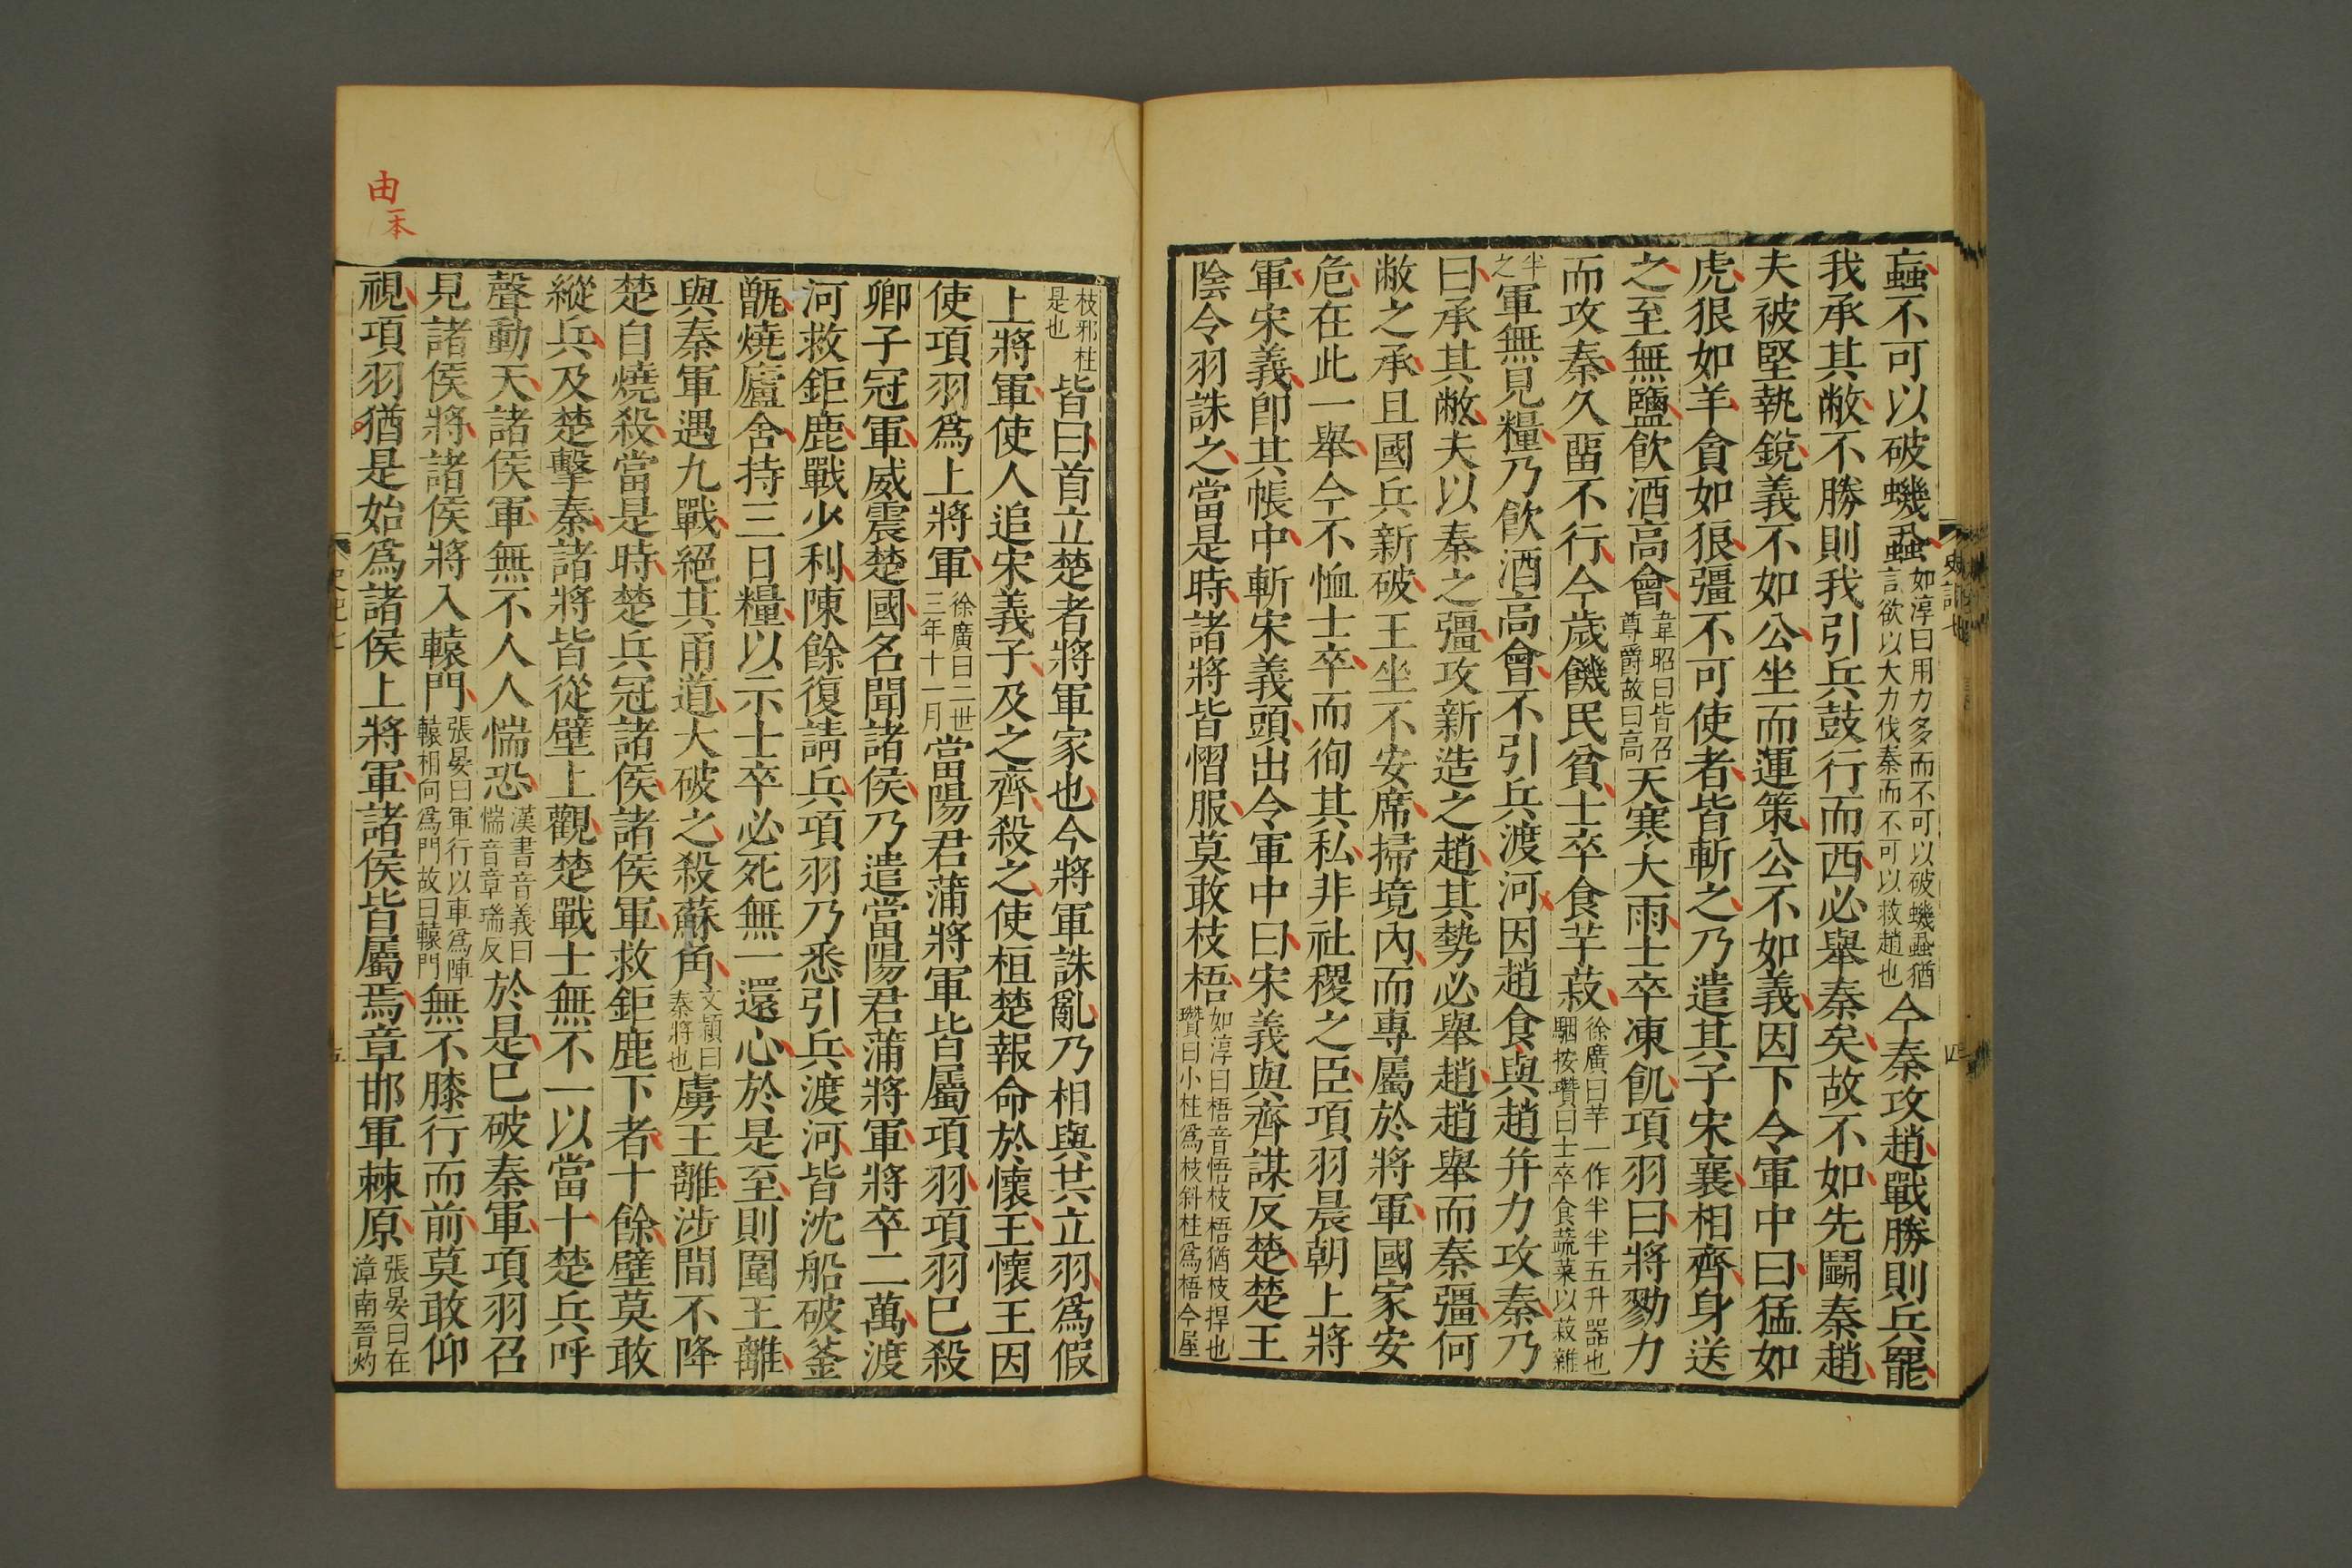 蝱不可以破蟣蝨如淳曰用力多而不可以破蟣蝨猶言欲以大力伐秦而不可以救趙也今秦攻趙戰勝則兵罷
我承其敝不勝則我引兵鼓行而西必舉秦矣故不如先鬬秦趙
夫被堅執銳義不如公坐而運策公不如義因下令軍中曰猛如
虎狠如羊貪如狼彊不可使者皆斬之乃遣其子宋襄相齊身送
之至無鹽飲酒高會韋昭曰皆召尊爵故曰高天寒大雨士卒凍飢項羽曰將勠力
而攻秦久畱不行今歲饑民貧士卒食芋菽徐廣曰芋一作半半五升器也駰按瓚曰士卒食蔬菜以菽雜
半之軍無見糧乃飲酒高會不引兵渡河因趙食與趙并力攻秦乃
曰承其敝夫以秦之彊攻新造之趙其勢必舉趙趙舉而秦彊何
敝之承且國兵新破王坐不安席掃境內而專屬於將軍國家安
危在此一舉今不恤士卒而徇其私非社稷之臣項羽晨朝上將
軍宋義卽其帳中斬宋義頭出令軍中曰宋義與齊謀反楚楚王
陰令羽誅之當是時諸將皆慴服莫敢枝梧如淳曰梧音悟枝梧猶枝捍也瓚曰小柱爲枝斜柱爲梧今屋
史記七
四
枝邪柱是也皆曰首立楚者將軍家也今將軍誅亂乃相與共立羽爲假
上將軍使人追宋義子及之齊殺之使桓楚報命於懷王懷王因
使項羽爲上將軍徐廣曰二世三年十一月當陽君蒲將軍皆屬項羽項羽已殺
卿子冠軍威震楚國名聞諸侯乃遣當陽君蒲將軍將卒二萬渡
河救鉅鹿戰少利陳餘復請兵項羽乃悉引兵渡河皆沈船破釜
甑燒廬舍持三日糧以示士卒必死無一還心於是至則圍王離
與秦軍遇九戰絕其甬道大破之殺蘇角文穎曰秦將也虜王離涉間不降
楚自燒殺當是時楚兵冠諸侯諸侯軍救鉅鹿下者十餘壁莫敢
縱兵及楚擊秦諸將皆從壁上觀楚戰士無不一以當十楚兵呼
聲動天諸侯軍無不人人惴恐漢書音義曰惴音章瑞反於是已破秦軍項羽召
見諸侯將諸侯將入轅門張晏曰軍行以車爲陣轅相向爲門故曰轅門無不膝行而前莫敢仰
視項羽猶是始爲諸侯上將軍諸侯皆屬焉章邯軍棘原張晏曰在漳南晉灼
由一本